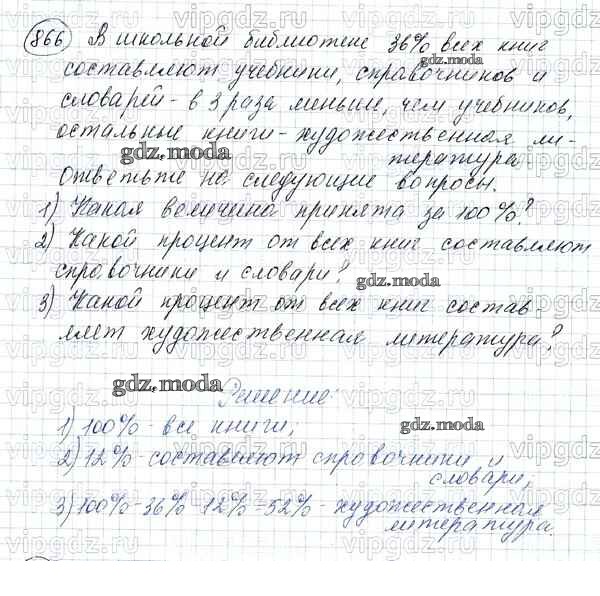 866 В школьной библиотеке 36% всех книг
gdz.moda
составляют учебники, справочников и
словарей - в 3 раза меньше, чем учебников,
остальные книги - художественная ли-
gdz.moda
тература.
ответьте на следующие вопросы.
1) Какая величина принята за 100%?
2) Какой процент от всех книг составляют
справочники и словари?
gdz.moda
3) Какой процент от всех книг состав-
ляет художественная литература?
gdz.moda
Решение:
1) 100% - все книги;
gdz.moda
2) 12% - составляют справочники и
словари;
3) 100% - 36% - 12% = 52% - художественная
литература.
vipgdz.ru